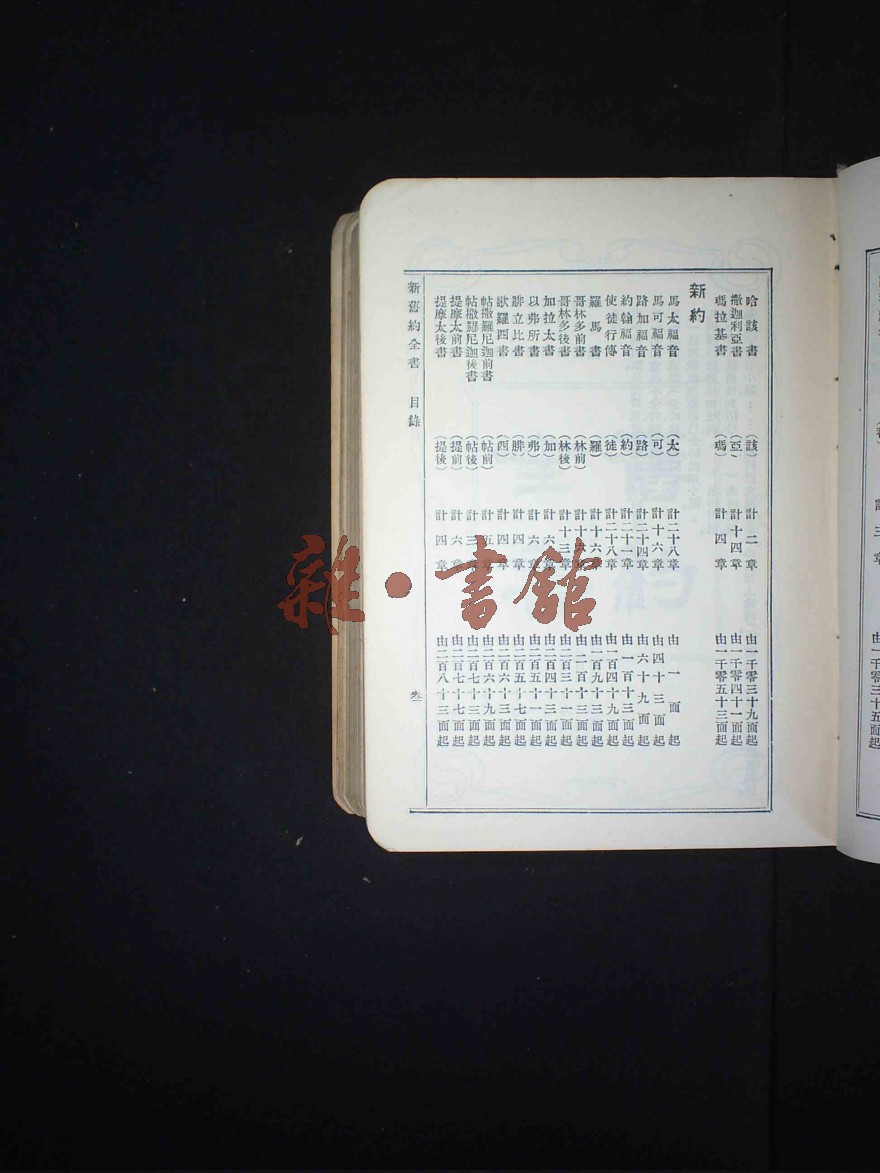 哈該書 （該） 計二章 由一千零三十九面起
撒迦利亞書 （亞） 計十四章 由一千零四十一面起
瑪拉基書 （瑪） 計四章 由一千零五十三面起
新約
馬太福音 （太） 計二十八章 由一面起
馬可福音 （可） 計十六章 由四十三面起
路加福音 （路） 計二十四章 由六十九面起
約翰福音 （約） 計二十一章 由一百十三面起
使徒行傳 （徒） 計二十八章 由一百四十九面起
羅馬書 （羅） 計十六章 由一百九十三面起
哥林多前書 （林前） 計十六章 由二百十三面起
哥林多後書 （林後） 計十三章 由二百三十一面起
加拉太書 （加） 計六章 由二百四十三面起
以弗所書 （弗） 計六章 由二百五十一面起
腓立比書 （腓） 計四章 由二百五十七面起
歌羅西書 （西） 計四章 由二百六十三面起
帖撒羅尼迦前書 （帖前） 計五章 由二百六十九面起
帖撒羅尼迦後書 （帖後） 計三章 由二百七十三面起
提摩太前書 （提前） 計六章 由二百七十七面起
提摩太後書 （提後） 計四章 由二百八十三面起
新舊約全書 目錄 叁
雜·書館
計三章 由一千零三十五面起